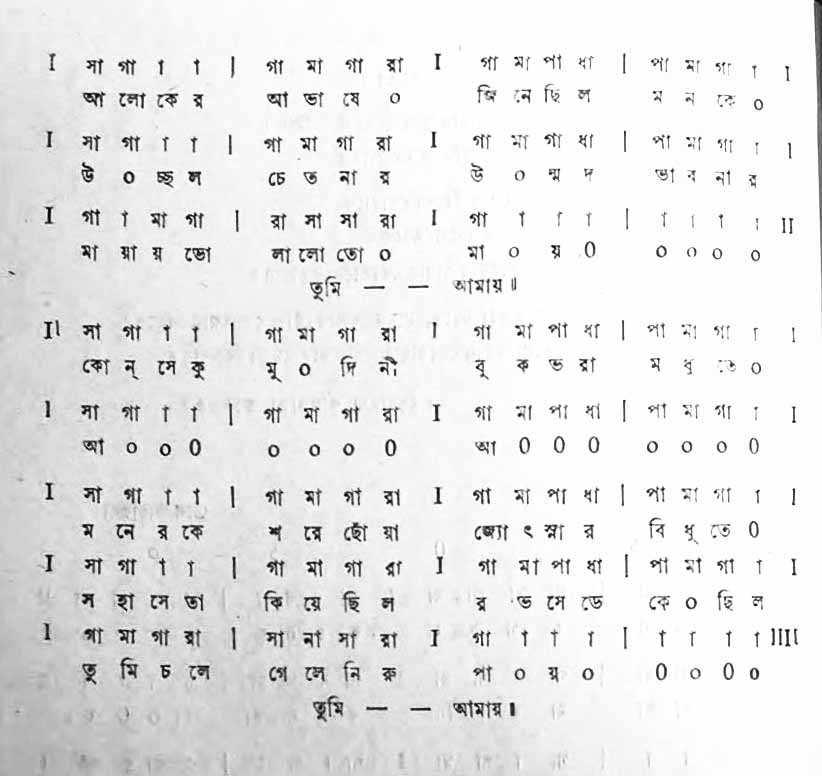 I সা গা া া | গা মা গা রা I গা মা পা ধা | পা মা গা া I
আ লো কে র আ ভা ষে ০ জি নে ছি ল ম ন কে ০
I সা গা া া | গা মা গা রা I গা মা গা ধা | পা মা গা া I
উ ০ চ্ছ ল চে ত না র উ ০ ন্ম দ ভা ব না র
I গা া মা গা | রা সা সা রা I গা া া া | া া া া II
মা য়া য় ভো লা লো তো ০ মা ০ য় ০ ০ ০ ০ ০
তুমি — — আমায়॥
II সা গা া া | গা মা গা রা I গা মা পা ধা | পা মা গা া I
কো ন্ সে কু মু ০ দি নী বু ক ভ রা ম ধু তে ০
I সা গা া া | গা মা গা রা I গা মা পা ধা | পা মা গা া I
আ ০ ০ ০ ০ ০ ০ ০ আ ০ ০ ০ ০ ০ ০ ০
I সা গা া া | গা মা গা রা I গা মা পা ধা | পা মা গা া I
ম নে র কে শ রে ছোঁ য়া জ্যো ৎ স্না র বি ধু তে ০
I সা গা া া | গা মা গা রা I গা মা পা ধা | পা মা গা া I
স হা সে তা কি য়ে ছি ল র ভ সে ডে কে ০ ছি ল
I গা মা গা রা | সা না সা রা I গা া া া | া া া া IIII
তু মি চ লে গে লে নি রু পা ০ য় ০ ০ ০ ০ ০
তুমি — — আমায়॥